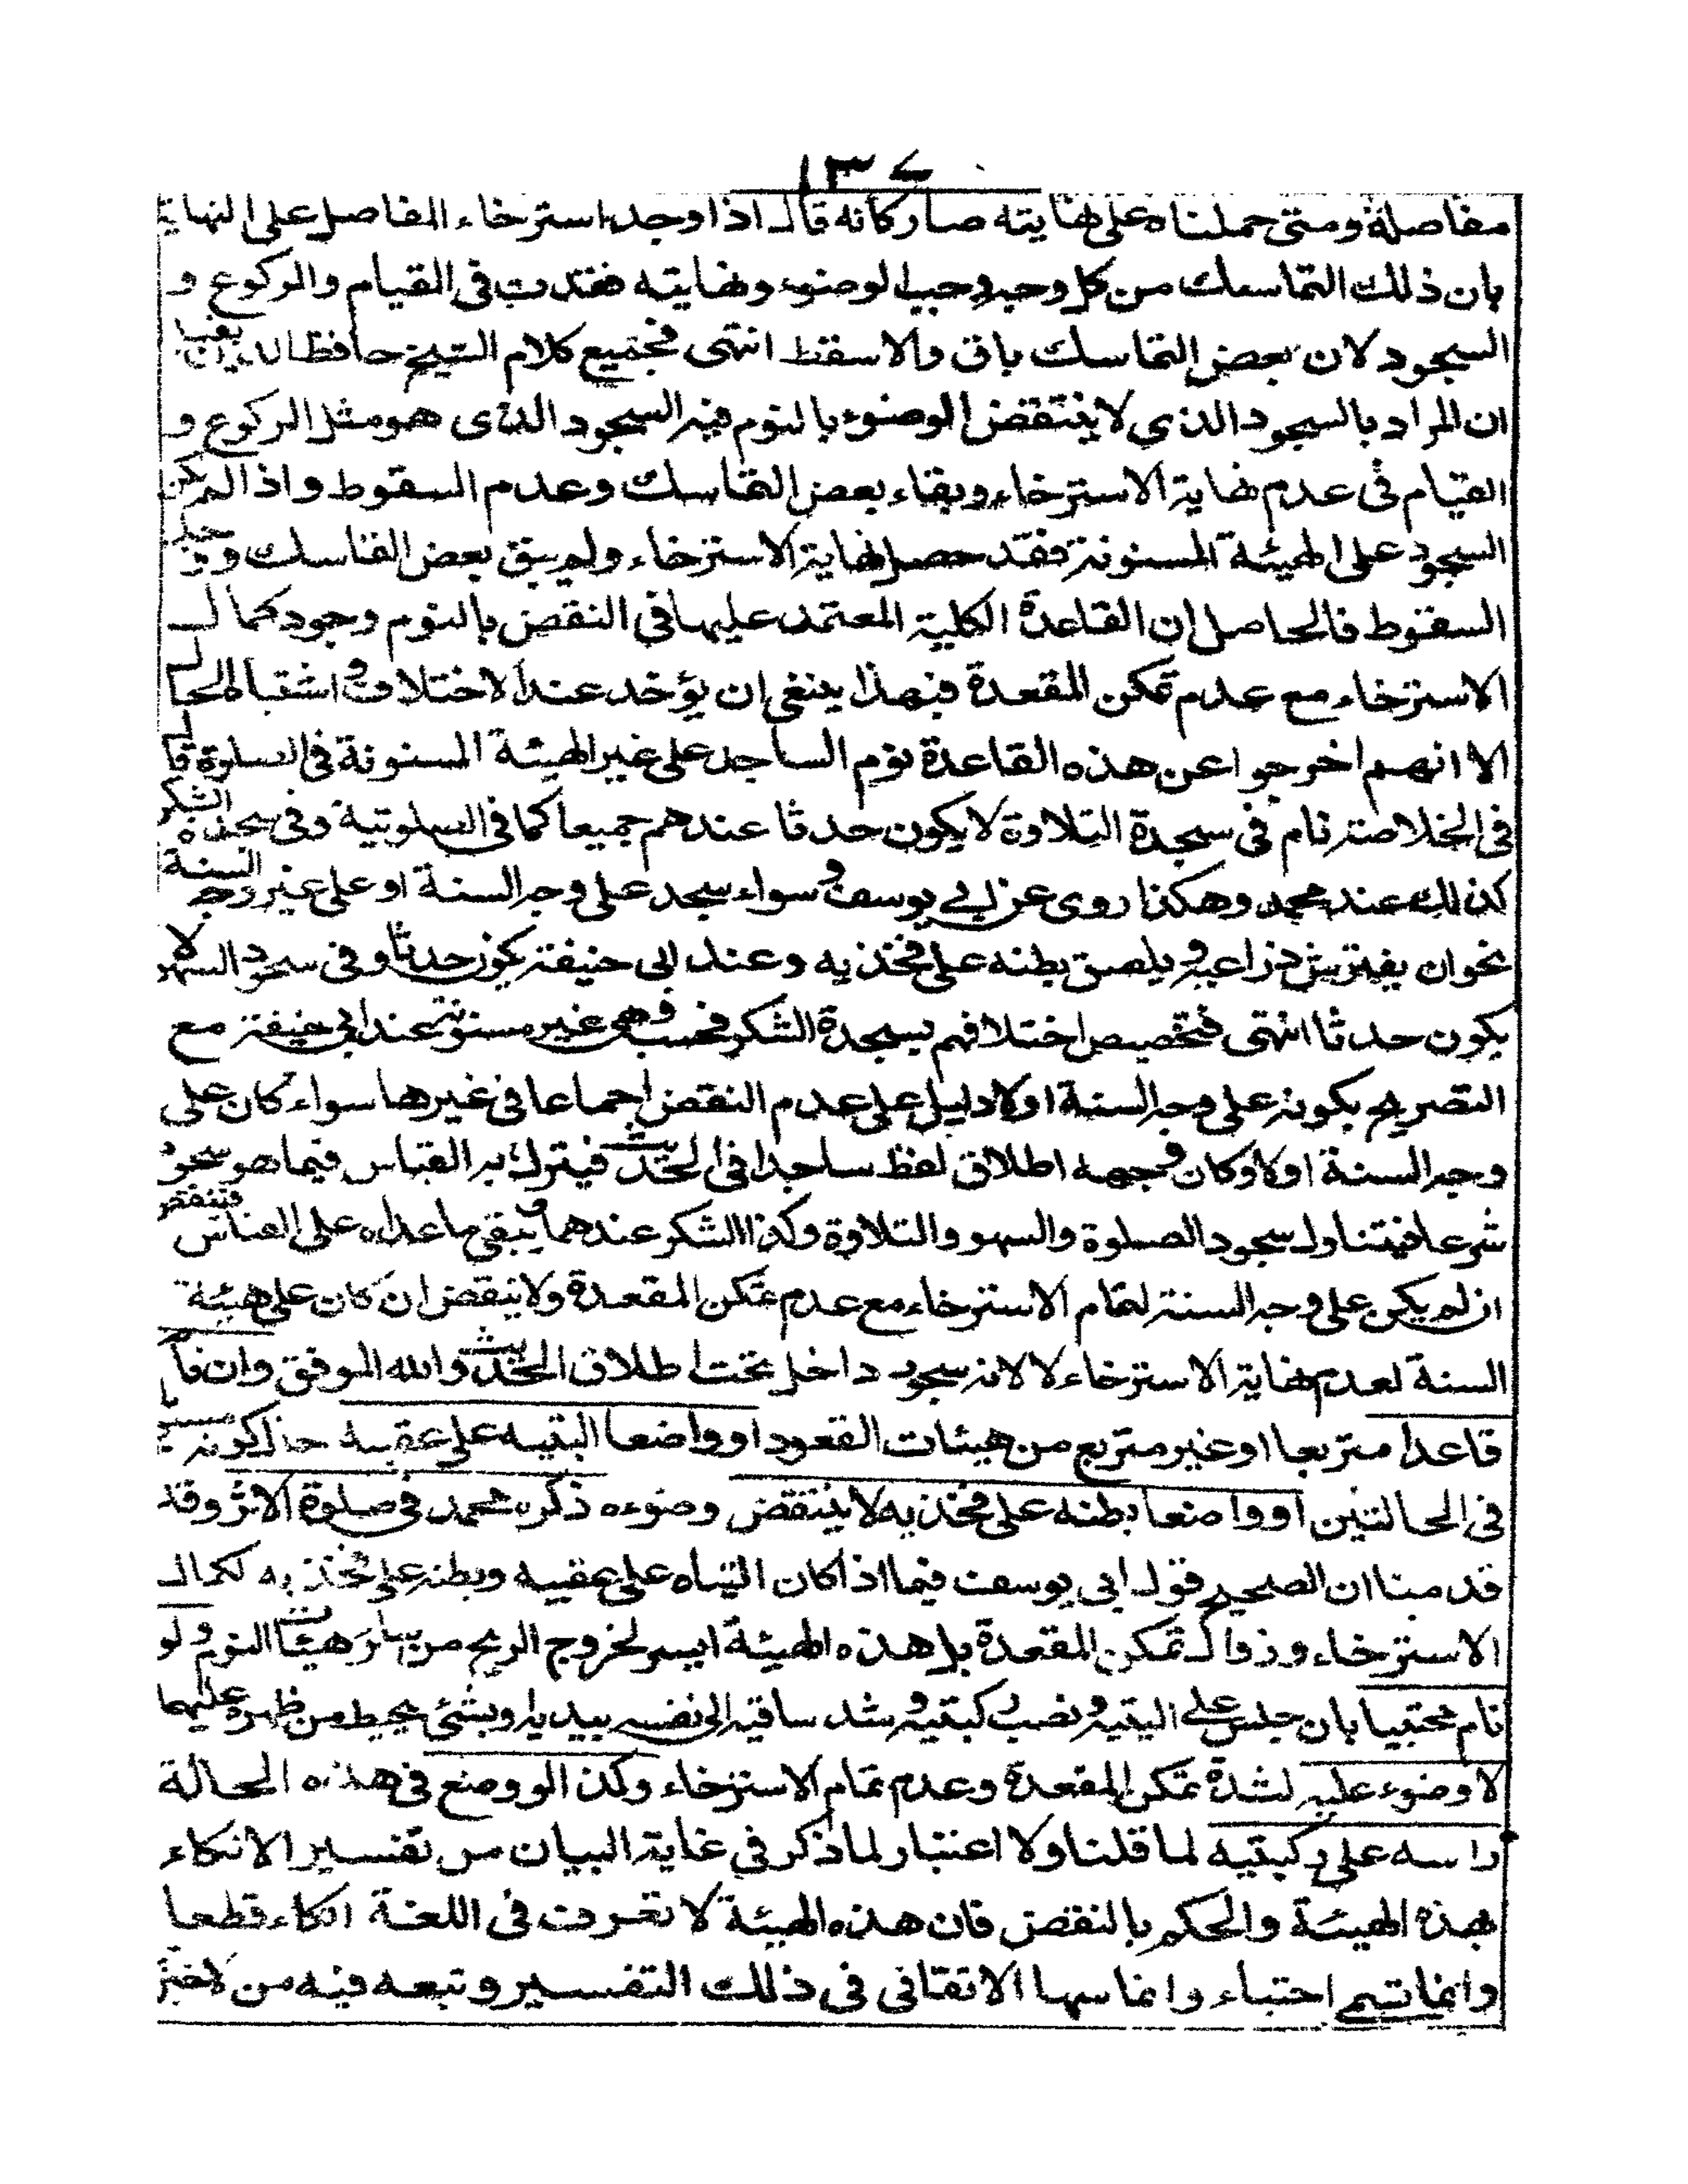 ١٣٧
مفاصله ومتى حملناه على نهايته صار كانه قال اذا وجد استرخاء المفاصل على النهاية
بان ذلك التماسك من كل وجه وجب الوضوء ونهايته فقدت فى القيام والركوع و
السجود لان بعض التماسك باق والا سقط انتهى فجميع كلام الشيخ حافظ الدين
ان المراد بالسجود الذى لا ينتقض الوضوء بالنوم فيه السجود الذى هو مثل الركوع و
القيام فى عدم نهاية الاسترخاء وبقاء بعض التماسك وعدم السقوط واذا لم يكن
السجود على الهيئة المسنونة فقد حصل نهاية الاسترخاء ولم يبق بعض التماسك ووجد
السقوط فالحاصل ان القاعدة الكلية المعتمد عليها فى النقض بالنوم وجود كمال
الاسترخاء مع عدم تمكن المقعدة فبهذا ينبغى ان يؤخذ عند الاختلاف واشتباه الحال
الا انهم اخرجوا عن هذه القاعدة نوم الساجد على غير الهيئة المسنونة فى الصلوة قال
فى الخلاصة نام فى سجدة التلاوة لا يكون حدثا عندهم جميعا كما فى الصلوتية وفى سجدة الشكر
كذلك عند محمد وهكذا روى عن ابى يوسف وسواء سجد على وجه السنة او على غير وجه السنة
نحو ان يفترش ذراعيه ويلصق بطنه على فخذيه وعند ابى حنيفة يكون حدثا وفى سجود السهو لا
يكون حدثا انتهى فتخصيص اختلافهم بسجدة الشكر فحسب وهى غير مسنونة عند ابى حنيفة مع
التصريح بكونه على وجه السنة او لا دليل على عدم النقض اجماعا فى غيرها سواء كان على
وجه السنة او لا وكان وجهه اطلاق لفظ ساجدا فى الحديث فيترك به القياس فيما هو سجود
شرعا فيتناول سجود الصلوة والسهو والتلاوة وكذا الشكر عندهما ويبقى ما عداه على القياس فينتقض
ان لم يكن على وجه السنة لتمام الاسترخاء مع عدم تمكن المقعدة ولا ينتقض ان كان على هيئة
السنة لعدم نهاية الاسترخاء لا لانه سجود داخل تحت اطلاق الحديث والله الموفق وان نام
قاعدا متربعا او غير متربع من هيئات القعود او واضعا اليتيه على عقبيه حال كونه
فى الحالتين او واضعا بطنه على فخذيه لا ينتقض وضوءه ذكره محمد فى صلوة الاثر وقد
قدمنا ان الصحيح قول ابى يوسف فيما اذا كان اليتاه على عقبيه وبطنه على فخذيه لكمال
الاسترخاء وزوال تمكن المقعدة بل هذه الهيئة ايسر لخروج الريح من سائر هيئات النوم ولو
نام محتبيا بان جلس على اليتيه ونصب ركبتيه وشد ساقيه الى نفسه بيديه او بشئ يحيط من ظهره عليهما
لا وضوء عليه لشدة تمكن المقعدة وعدم تمام الاسترخاء وكذا لو وضع فى هذه الحالة
راسه على ركبتيه لما قلنا ولا اعتبار لما ذكر فى غاية البيان من تفسير الاتكاء
بهذه الهيئة والحكم بالنقض فان هذه الهيئة لا تعرف فى اللغة اتكاء قطعا
وانما تسمى احتباء وانما سها الاتقانى فى ذلك التفسير وتبعه فيه من لا خبرة